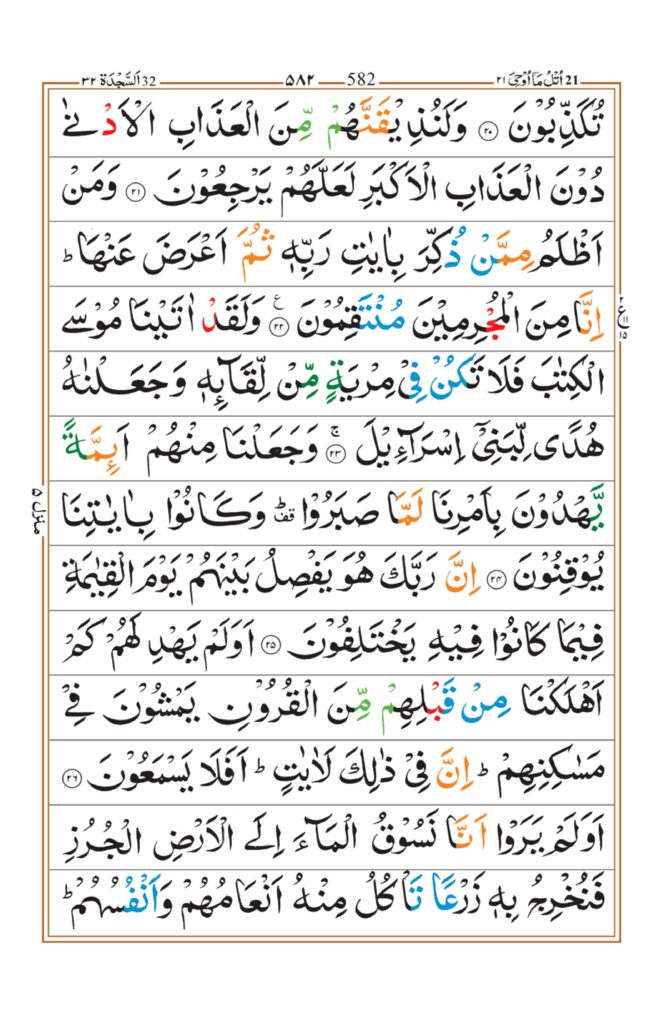 21 اُتْلُ مَاۤ اُوْحِیَ ۲۱ 582 ۵۸۲ 32 اَلسَّجْدَة ۳۲
تُكَذِّبُوْنَ ۲۰ وَلَنُذِیْقَنَّهُمْ مِّنَ الْعَذَابِ الْاَدْنٰی
دُوْنَ الْعَذَابِ الْاَكْبَرِ لَعَلَّهُمْ یَرْجِعُوْنَ ۲۱ وَمَنْ
اَظْلَمُ مِمَّنْ ذُكِّرَ بِاٰیٰتِ رَبِّهٖ ثُمَّ اَعْرَضَ عَنْهَا ؕ
اِنَّا مِنَ الْمُجْرِمِیْنَ مُنْتَقِمُوْنَ ۲۲ ع وَلَقَدْ اٰتَیْنَا مُوْسَی
الْكِتٰبَ فَلَا تَكُنْ فِیْ مِرْیَةٍ مِّنْ لِّقَآئِهٖ وَجَعَلْنٰهُ
هُدًی لِّبَنِیْۤ اِسْرَآءِیْلَ ۲۳ ۚ وَجَعَلْنَا مِنْهُمْ اَئِمَّةً
یَّهْدُوْنَ بِاَمْرِنَا لَمَّا صَبَرُوْا ۛ قف وَكَانُوْا بِاٰیٰتِنَا
یُوْقِنُوْنَ ۲۴ اِنَّ رَبَّكَ هُوَ یَفْصِلُ بَیْنَهُمْ یَوْمَ الْقِیٰمَةِ
فِیْمَا كَانُوْا فِیْهِ یَخْتَلِفُوْنَ ۲۵ اَوَلَمْ یَهْدِ لَهُمْ كَمْ
اَهْلَكْنَا مِنْ قَبْلِهِمْ مِّنَ الْقُرُوْنِ یَمْشُوْنَ فِیْ
مَسٰكِنِهِمْ ؕ اِنَّ فِیْ ذٰلِكَ لَاٰیٰتٍ ؕ اَفَلَا یَسْمَعُوْنَ ۲۶
اَوَلَمْ یَرَوْا اَنَّا نَسُوْقُ الْمَآءَ اِلَی الْاَرْضِ الْجُرُزِ
فَنُخْرِجُ بِهٖ زَرْعًا تَاْكُلُ مِنْهُ اَنْعَامُهُمْ وَاَنْفُسُهُمْ ؕ
منزل ۵